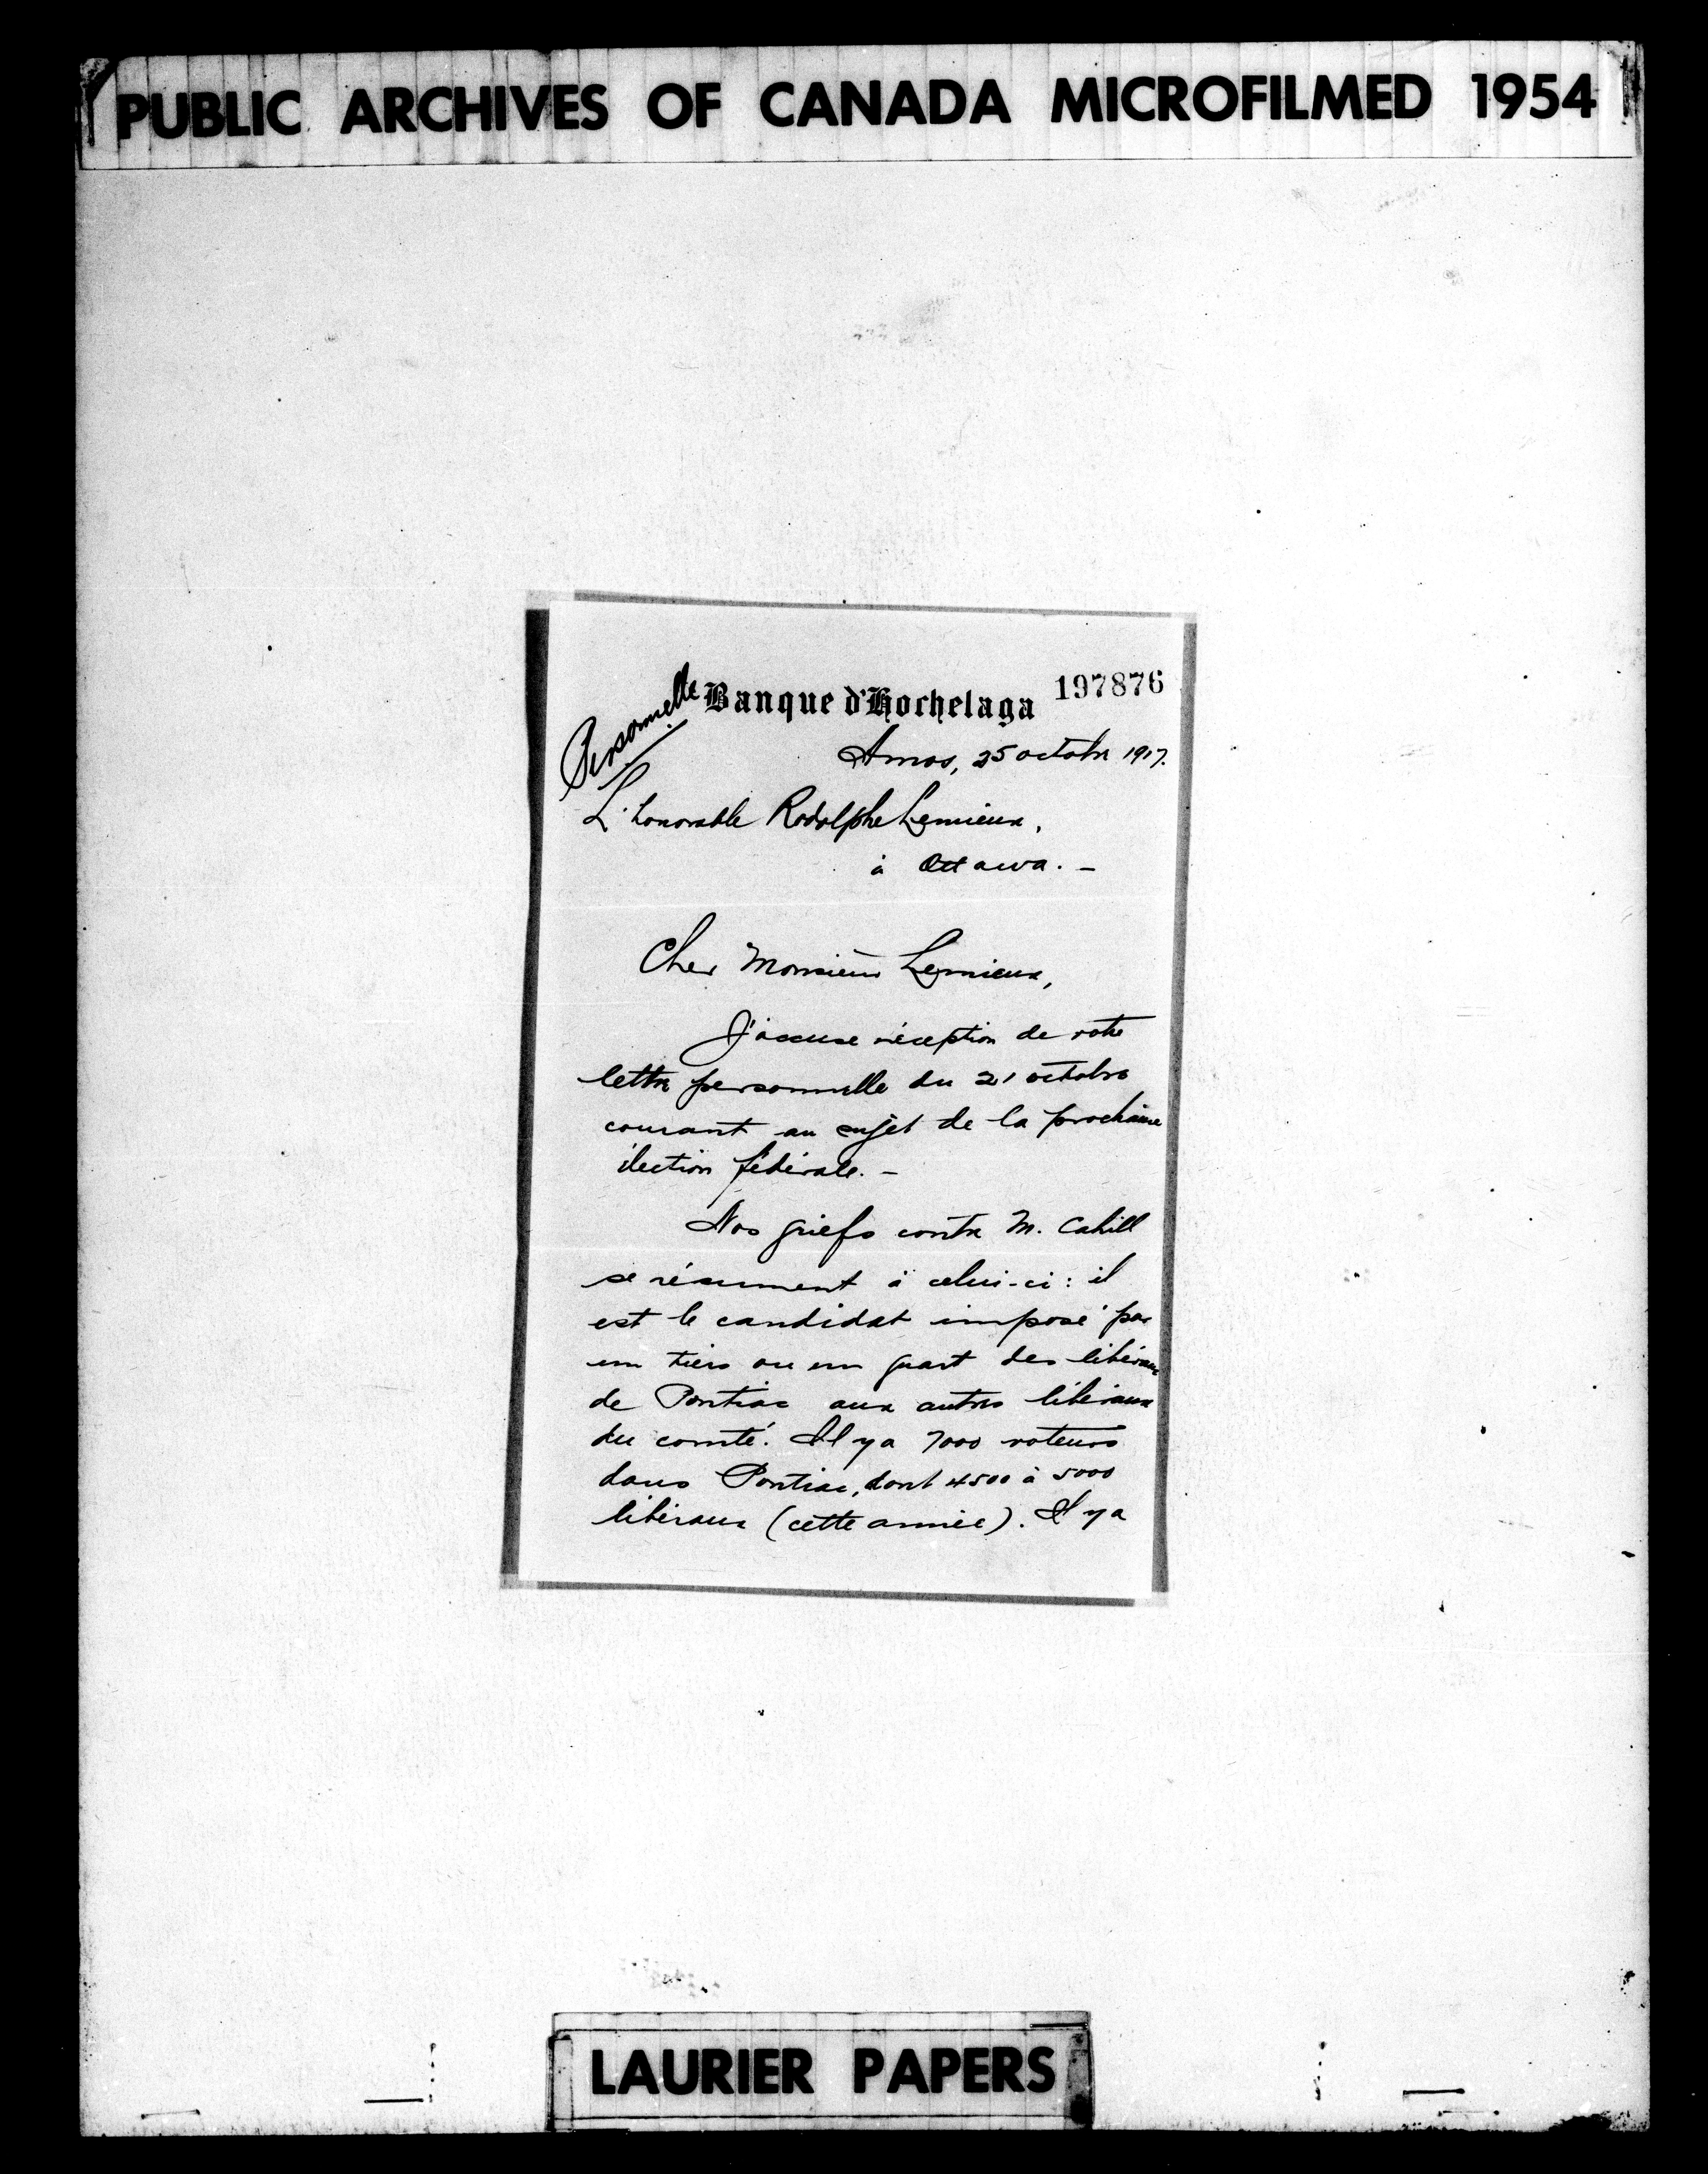 PUBLIC ARCHIVES OF CANADA MICROFILMED 1954
197876
Personnelle
Banque d'Hochelaga
Amos, 25 octobre 1917.
L'honorable Rodolphe Lemieux,
à Ottawa. –
Cher Monsieur Lemieux,
J'accuse réception de votre
lettre personnelle du 21 octobre
courant au sujet de la prochaine
élection fédérale. –
Nos griefs contre M. Cahill
se résument à celui-ci : il
est le candidat imposé par
un tiers ou un quart des libéraux
de Pontiac aux autres libéraux
du comté. Il y a 7000 voteurs
dans Pontiac, dont 4500 à 5000
libéraux (cette année). Il y a
LAURIER PAPERS